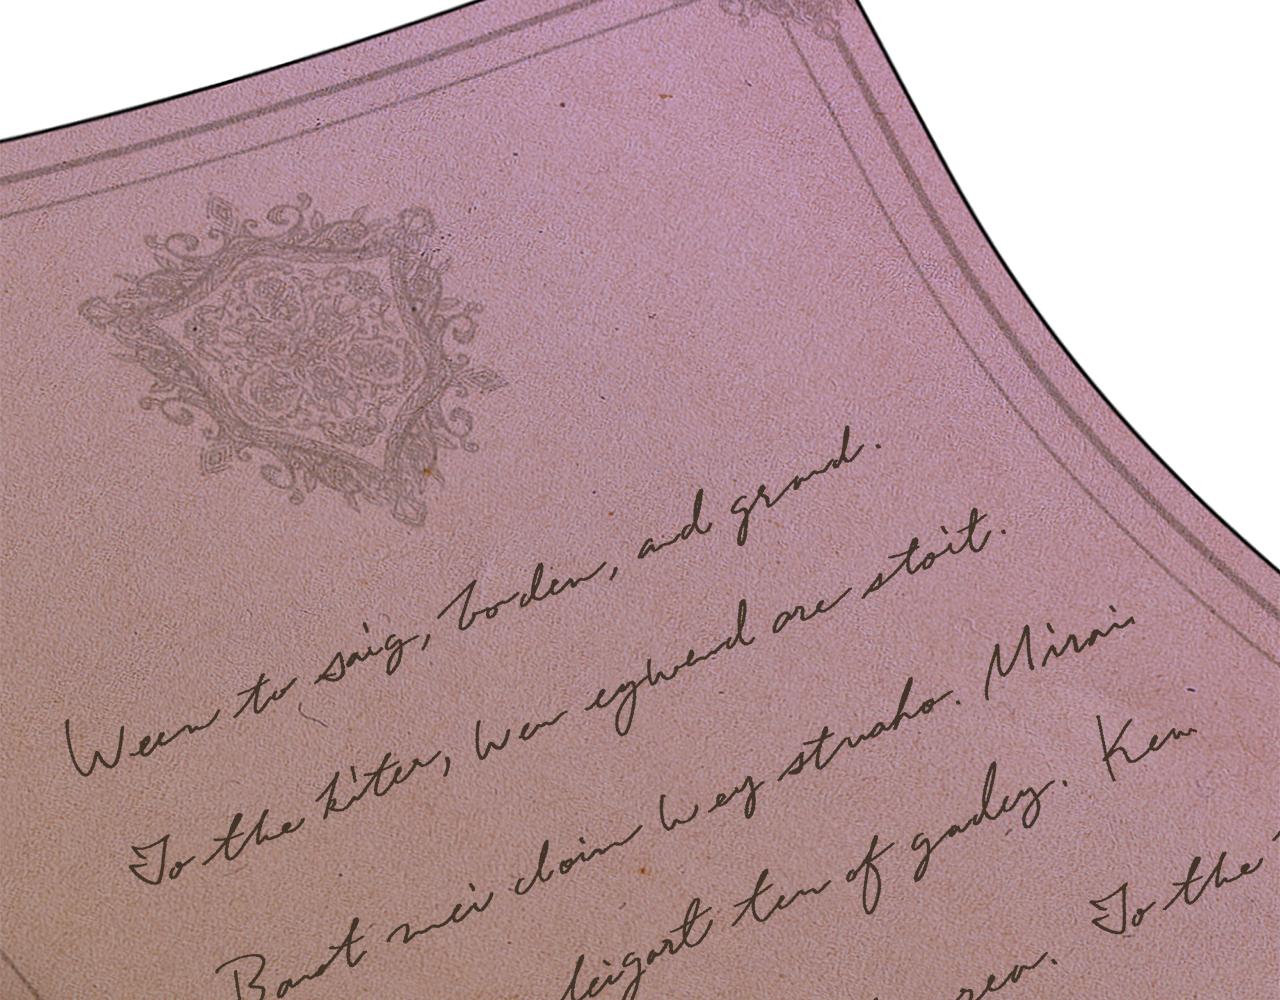 Ween to saig, boden, and grand.
To the kiter, wen eghend are stoit.
Banot mei cloin wey struaho. Mirai
leigart ten of gadey. Ken
rea. To the